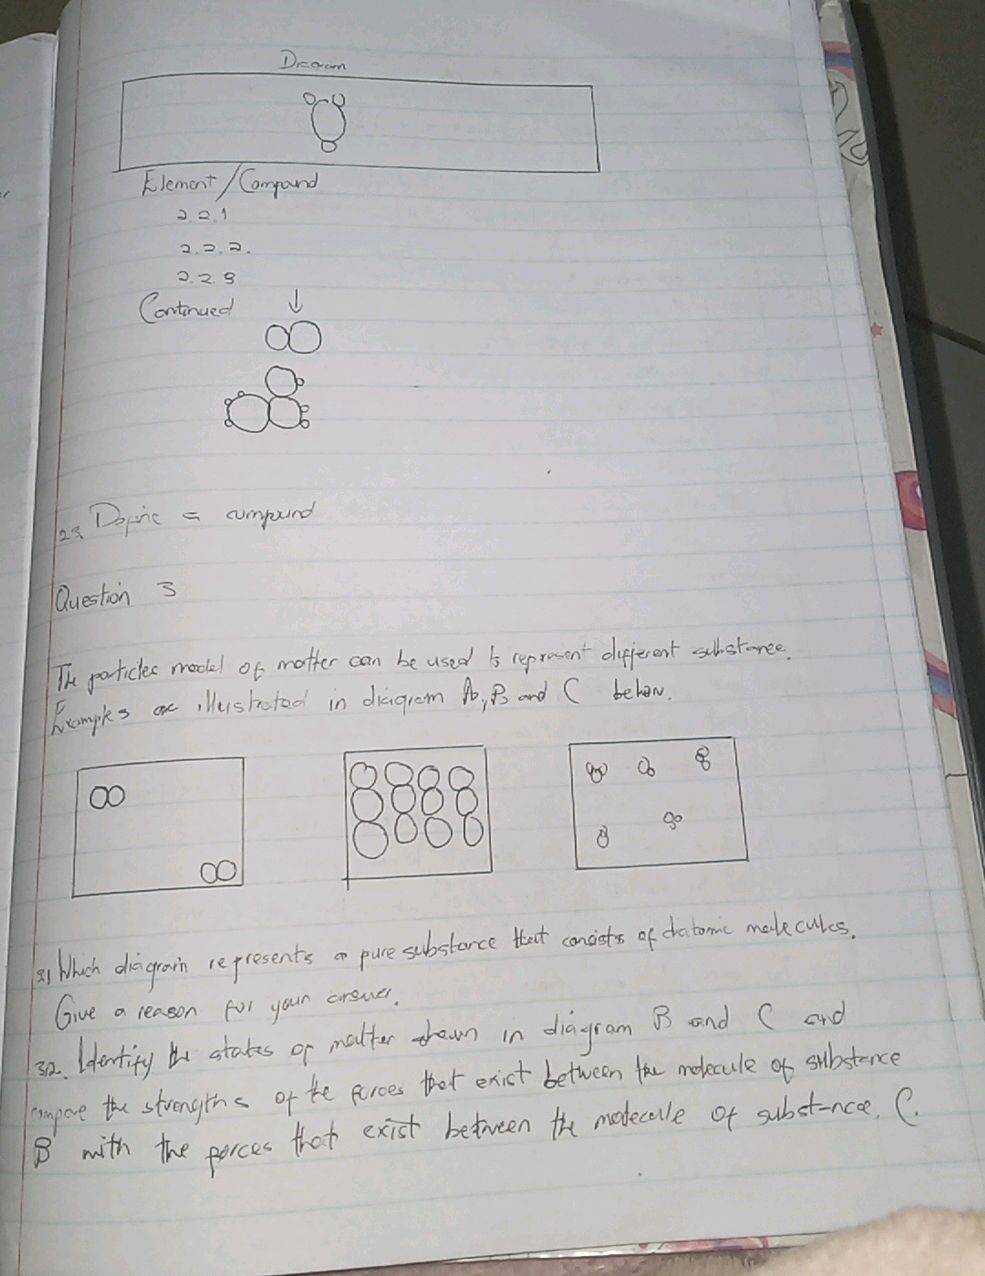 Diagram
Element/Compound
2.2.1
2.2.2.
2.2.3
Continued
2.3. Define = compound
Question 3
The particles model of matter can be used to represent different substance.
Examples are illustrated in diagram A, B and C below.
3.1 Which diagram represents a pure substance that consists of diatomic molecules.
Give a reason for your answer.
3.2. Identify the states of matter shown in diagram B and C and
compare the strengths of the forces that exist between the molecule of substance
B with the forces that exist between the molecule of substance. C.